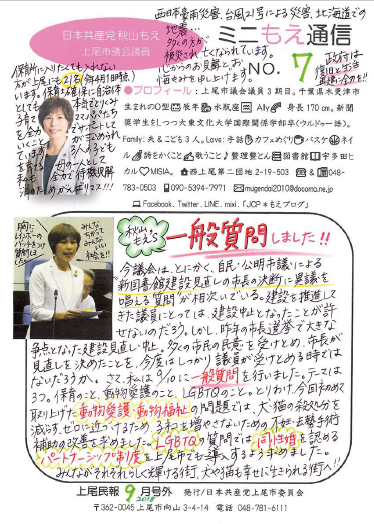 西日本豪雨災害、台風21号による災害、北海道での
地震…
多くの方が
被災され亡くなられています。
心からのお見舞とお
悔やみを申し上げます
政府は
復旧と生活
再建に全力を!!
日本共産党 秋山もえ
上尾市議会議員
ミニもえ通信
NO. 7
保育所に入りたくても入れない
方が上尾にも21名(今年4月1時点)
います。
●プロフィール:上尾市議会議員3期目。千葉県木更津市
生まれのO型 辰年 水瓶座 Ally 身長170cm。新聞
奨学生をしつつ大東文化大学国際関係学部卒(ウルドゥー語)。
Family:夫&こども3人。Love:手話 カフェめぐり バスケ ネイ
ル 詩をかくこと 歌うこと 整理整とん 図書館 宇多田ヒ
カル MISIA。 西上尾第二団地2-19-503 048-
783-0503 090-5394-7971 mugendai2010@docomo.ne.jp
Facebook、Twitter、LINE、mixi、「JCP*もえブログ」
胸に
レインボー
のバッチをつけ
質問しま
した!
みんな
ちがって
みんないい
社会を!!
秋山
もえ's
一般質問しました!!
今議会は、とにかく、自民・公明市議による
新図書館建設見直しの市長の決断に異議を
唱える質問が相次いでいる。建設を推進して
きた議員にとっては、建設中止となったことが許
せないのだろう。しかし、昨年の市長選挙で大きな
争点となった建設見直し・中止。多くの市民の民意を受けとめ、市長が
見直しを決めたことを、今度はしっかり議員が受けとめる時では
ないだろうか。さて、私は9/10に一般質問を行いました。テーマは
3つ。保育のこと、動物愛護のこと、LGBTQのこと。とりわけ、今回初めて
取り上げた動物愛護・動物福祉の問題では、犬・猫の殺処分を
減らす、ゼロに近づけるため、これ以上増やさないための不妊・去勢手術
補助の改善を求めました。LGBTQの質問では同性婚を認める
パートナーシップ制度を上尾市でも導入するよう求めました。
みんながそれぞれらしく輝ける街、犬や猫も幸せに生きられる街へ!!
上尾民報 9月号外 2018 発行/日本共産党上尾市委員会
〒362-0045 上尾市向山3-4-14 電話 048-781-6111